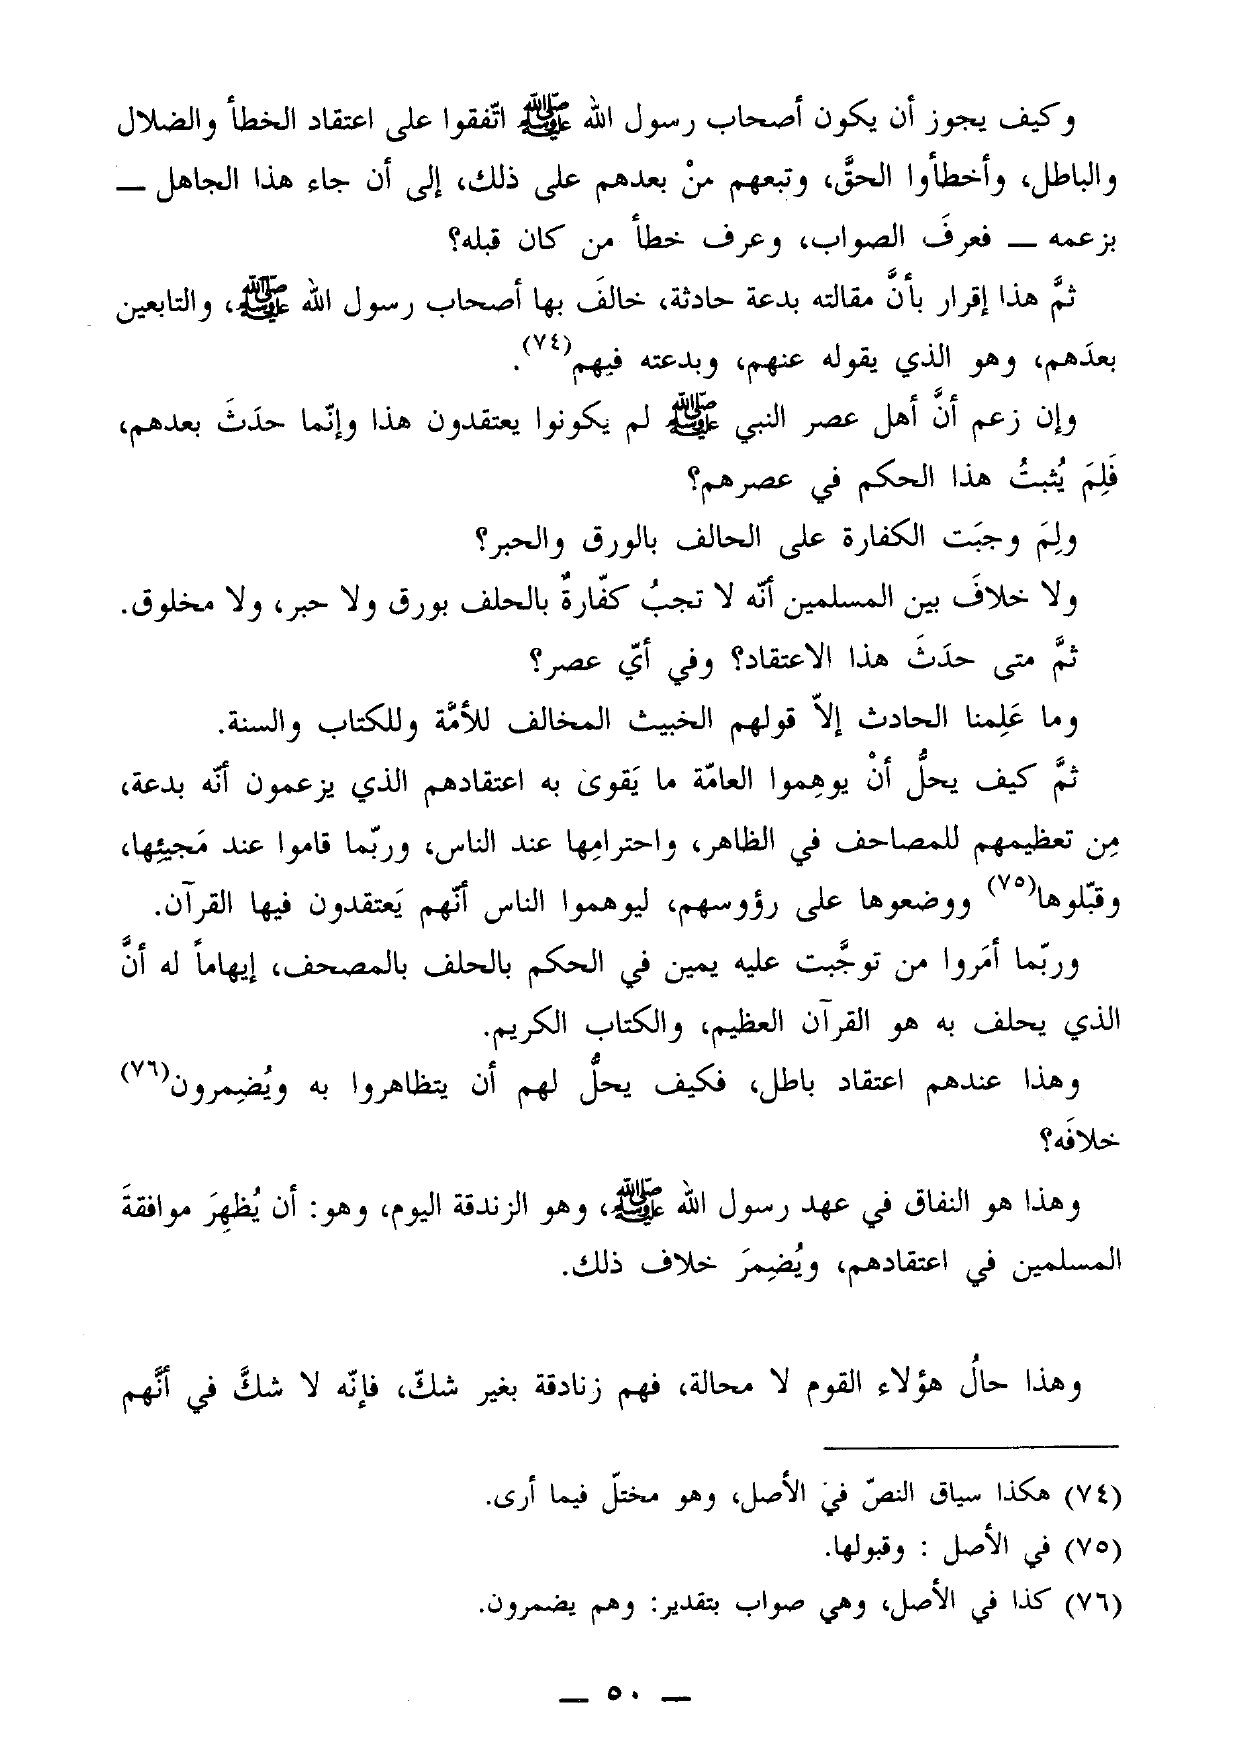 وكيف يجوز أن يكون أصحاب رسول الله ﷺ اتّفقوا على اعتقاد الخطأ والضلال
والباطل، وأخطأوا الحقَّ، وتبعهم منْ بعدهم على ذلك، إلى أن جاء هذا الجاهل —
بزعمه — فعرفَ الصواب، وعرف خطأ من كان قبله؟
ثمَّ هذا إقرار بأنَّ مقالته بدعة حادثة، خالفَ بها أصحاب رسول الله ﷺ، والتابعين
بعدَهم، وهو الذي يقوله عنهم، وبدعته فيهم(٧٤).
وإن زعم أنَّ أهل عصر النبي ﷺ لم يكونوا يعتقدون هذا وإنّما حدَثَ بعدهم،
فَلِمَ يُثبتُ هذا الحكم في عصرهم؟
ولِمَ وجبَت الكفارة على الحالف بالورق والحبر؟
ولا خلافَ بين المسلمين أنّه لا تجبُ كفّارةٌ بالحلف بورق ولا حبر، ولا مخلوق.
ثمَّ متى حدَثَ هذا الاعتقاد؟ وفي أيّ عصر؟
وما عَلِمنا الحادث إلاّ قولهم الخبيث المخالف للأمَّة وللكتاب والسنة.
ثمَّ كيف يحلُّ أنْ يوهِموا العامّة ما يَقوىٰ به اعتقادهم الذي يزعمون أنّه بدعة،
مِن تعظيمهم للمصاحف في الظاهر، واحترامِها عند الناس، وربّما قاموا عند مَجيئِها،
وقبّلوها(٧٥) ووضعوها على رؤوسهم، ليوهموا الناس أنّهم يَعتقدون فيها القرآن.
وربّما أمَروا من توجَّبت عليه يمين في الحكم بالحلف بالمصحف، إيهاماً له أنَّ
الذي يحلف به هو القرآن العظيم، والكتاب الكريم.
وهذا عندهم اعتقاد باطل، فكيف يحلُّ لهم أن يتظاهروا به ويُضِمرون(٧٦)
خلافَه؟
وهذا هو النفاق في عهد رسول الله ﷺ، وهو الزندقة اليوم، وهو: أن يُظهِرَ موافقةَ
المسلمين في اعتقادهم، ويُضِمرَ خلاف ذلك.
وهذا حالُ هؤلاء القوم لا محالة، فهم زنادقة بغير شكّ، فإنّه لا شكَّ في أنَّهم
(٧٤) هكذا سياق النصّ في الأصل، وهو مختلّ فيما أرى.
(٧٥) في الأصل : وقبولها.
(٧٦) كذا في الأصل، وهي صواب بتقدير: وهم يضمرون.
— ٥٠ —